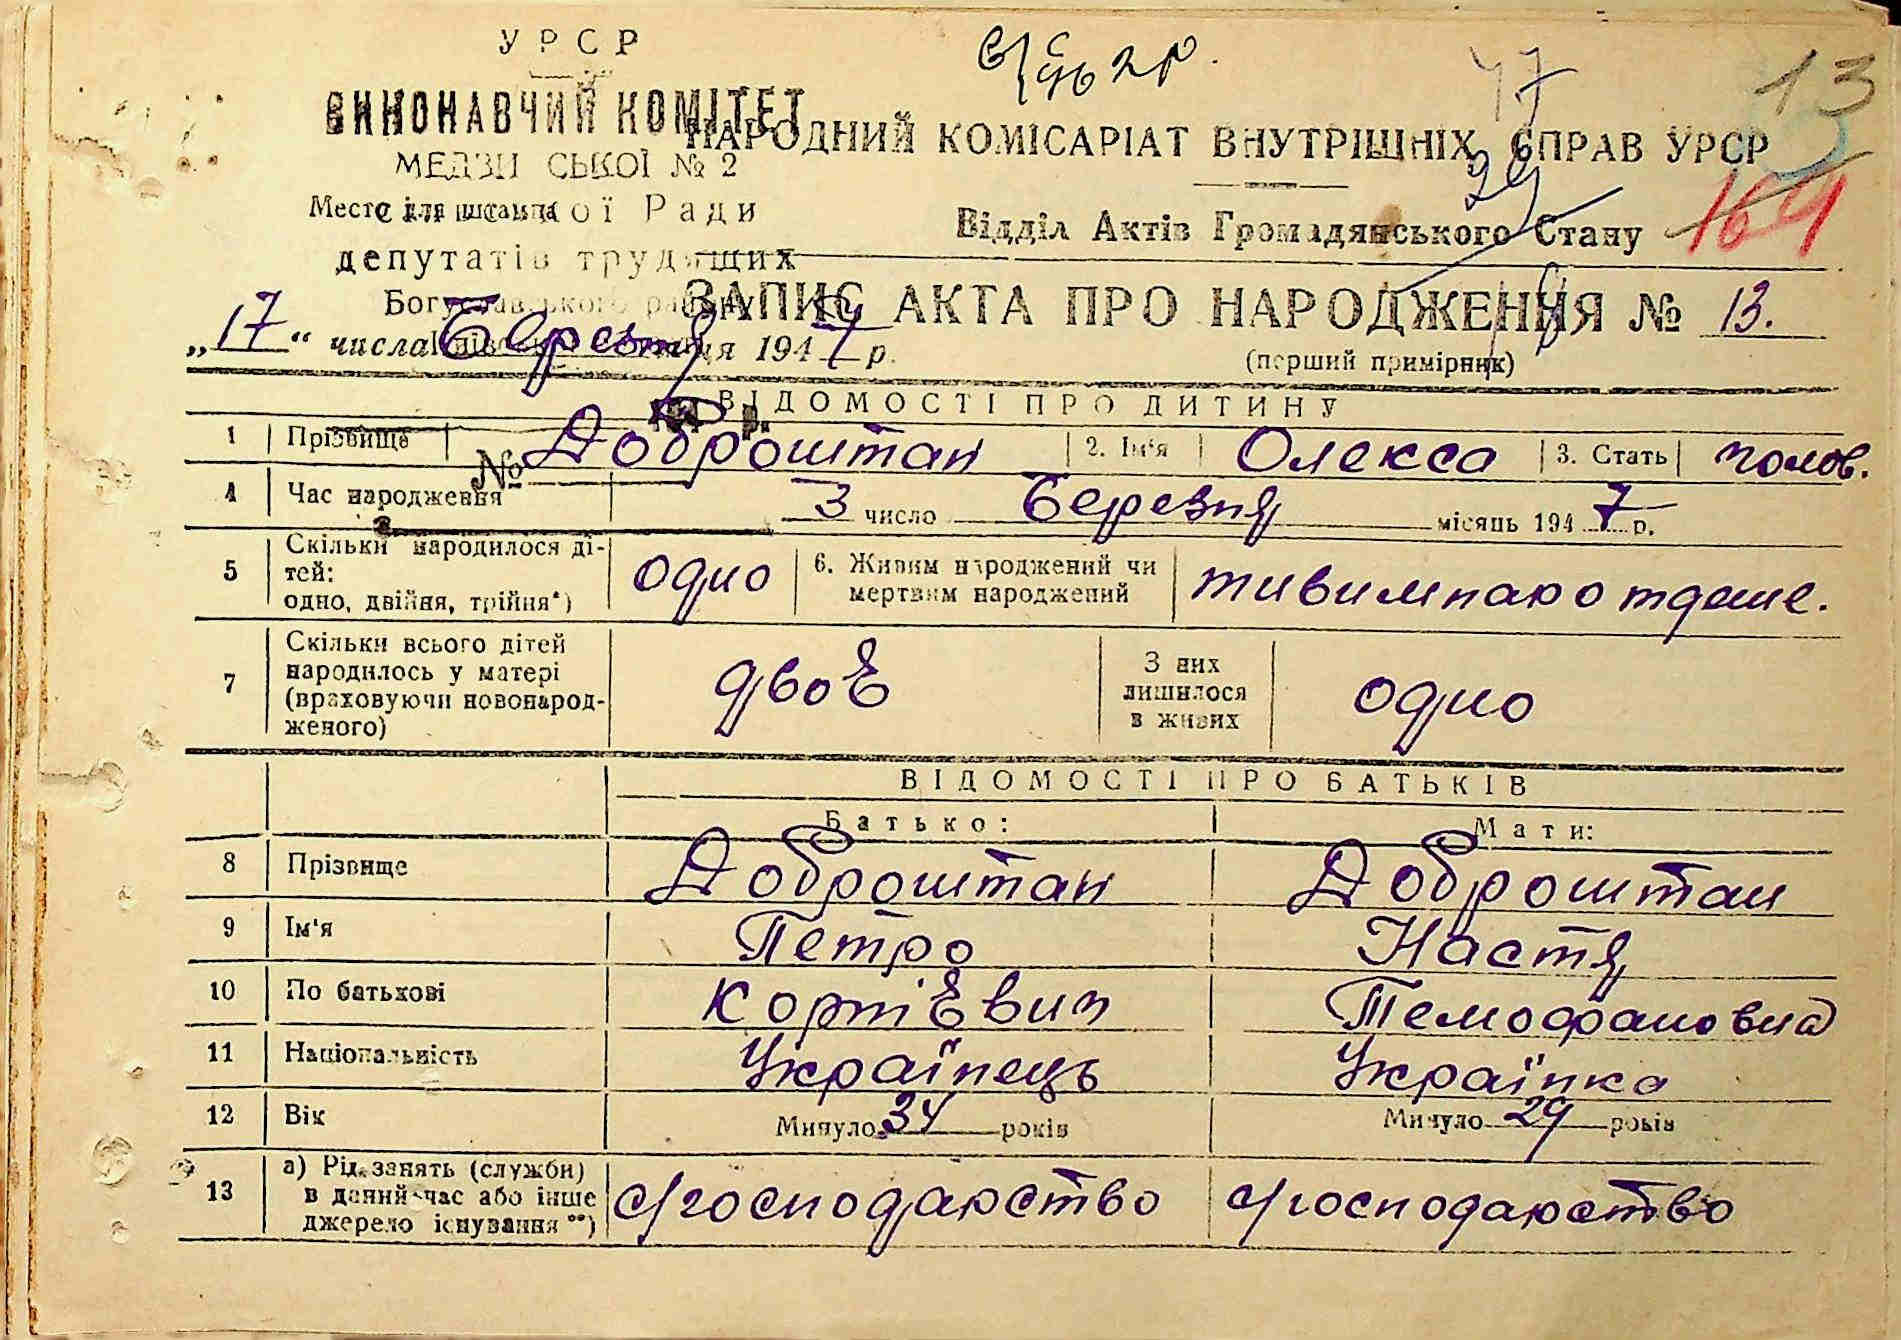 УРСР
ВИКОНАВЧИЙ КОМІТЕТ
МЕДВИ СЬКОЇ № 2
Место для штампа
ої Ради
депутатів трудящих
Богуславського району
НАРОДНИЙ КОМІСАРІАТ ВНУТРІШНІХ СПРАВ УРСР
47
13
29
164
Відділ Актів Громадянського Стану
ЗАПИС АКТА ПРО НАРОДЖЕННЯ № 13.
(перший примірник)
„17“ числа Березня 1947 р.
ВІДОМОСТІ ПРО ДИТИНУ
1 Прізвище Доброштан 2. Ім'я Олекса 3. Стать чолов.
№
4 Час народження 3 число Березня місяць 1947 р.
5 Скільки народилося ді-
тей:
одно, двійня, трійня*) одно 6. Живим народжений чи
мертвим народжений живимнародшеме.
7 Скільки всього дітей
народилось у матері
(враховуючи новонарод-
женого) двоє З них
лишилося
в живих одно
ВІДОМОСТІ ПРО БАТЬКІВ
Батько: Мати:
8 Прізвище Доброштан Доброштан
9 Ім'я Петро Настя
10 По батькові Корнієвич Темофановна
11 Національність Українець Українка
12 Вік Минуло 34 років Минуло 29 років
13 а) Рід занять (служби)
в даний час або інше
джерело існування**) с/господарство с/господарство